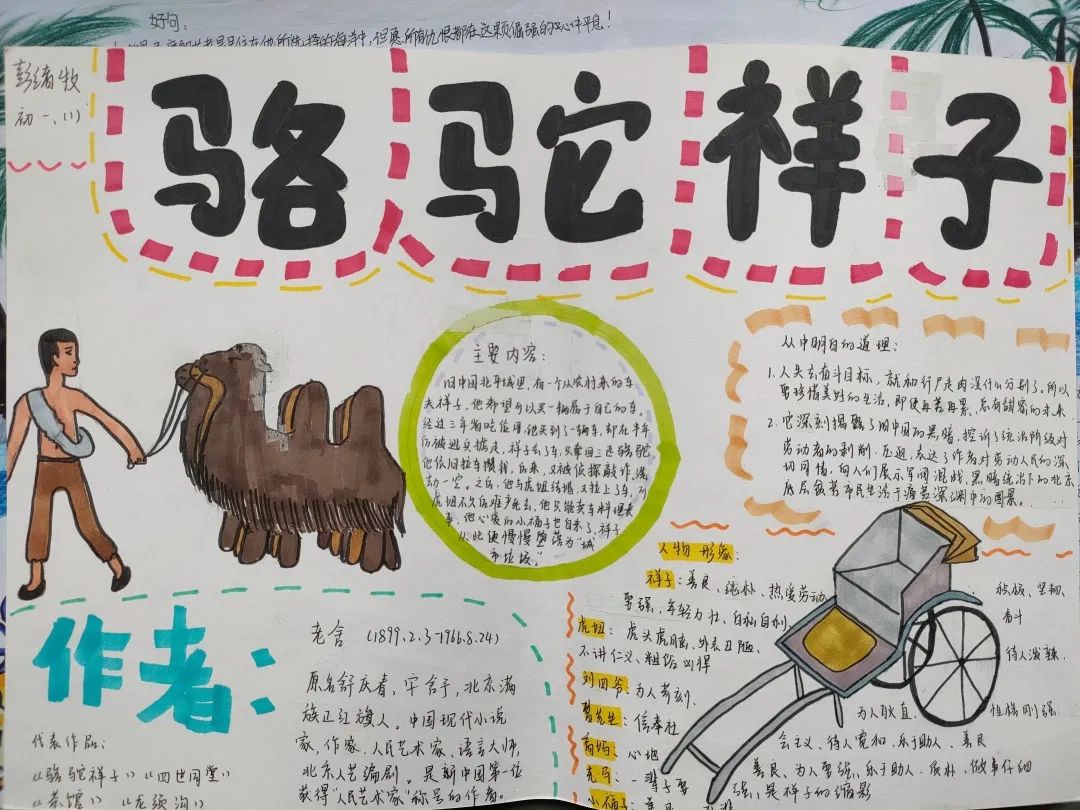 好句：
但愿所有仇恨都在这颗倔强的心中平息！
彭绪牧
初一、(1)
骆驼祥子
主要内容：
旧中国北平城里，有一个从农村来的车
夫祥子，他希望可以买一辆属于自己的车，
经过三年省吃俭用，他买到了一辆车，却在半年
后被逃兵掳走，祥子丢了车，只牵回三匹骆驼
他依旧拉车攒钱，后来，又被侦探敲诈，洗
劫一空。之后，他与虎妞结婚，又拉上了车，可
虎妞不久后难产死去，他只能卖车料理丧
事，他心爱的小福子也自杀了，祥子
从此便慢慢堕落为“城
市垃圾”。
从中明白的道理：
1. 人失去奋斗目标，就和行尸走肉没什么分别了，所以
要珍惜美好的生活，即使再苦再累，总有甜蜜的未来
2. 它深刻揭露了旧中国的黑暗，控诉了统治阶级对
劳动者的剥削、压迫，表达了作者对劳动人民的深
切同情，向人们展示军阀混战、黑暗统治下的北京
底层贫苦市民生活于痛苦深渊中的图景。
人物形象：
祥子：善良、纯朴、热爱劳动、积极、坚韧、
要强、年轻力壮、自私自利、奋斗
虎妞：虎头虎脑、外表丑陋、待人泼辣、
不讲仁义、粗俗凶悍
刘四爷：为人苛刻、为人耿直、性格刚强
曹先生：信奉社会主义、待人宽和、乐于助人、善良
高妈：心地善良、为人要强、乐于助人、质朴、做事仔细
老马：一辈子要强、是祥子的缩影
小福子：
作者：
老舍（1899.2.3-1966.8.24）
原名舒庆春，字舍予，北京满
族正红旗人。中国现代小说
家，作家，人民艺术家，语言大师，
北京人艺编剧。是新中国第一位
获得“人民艺术家”称号的作者。
代表作品：
《骆驼祥子》《四世同堂》
《茶馆》《龙须沟》